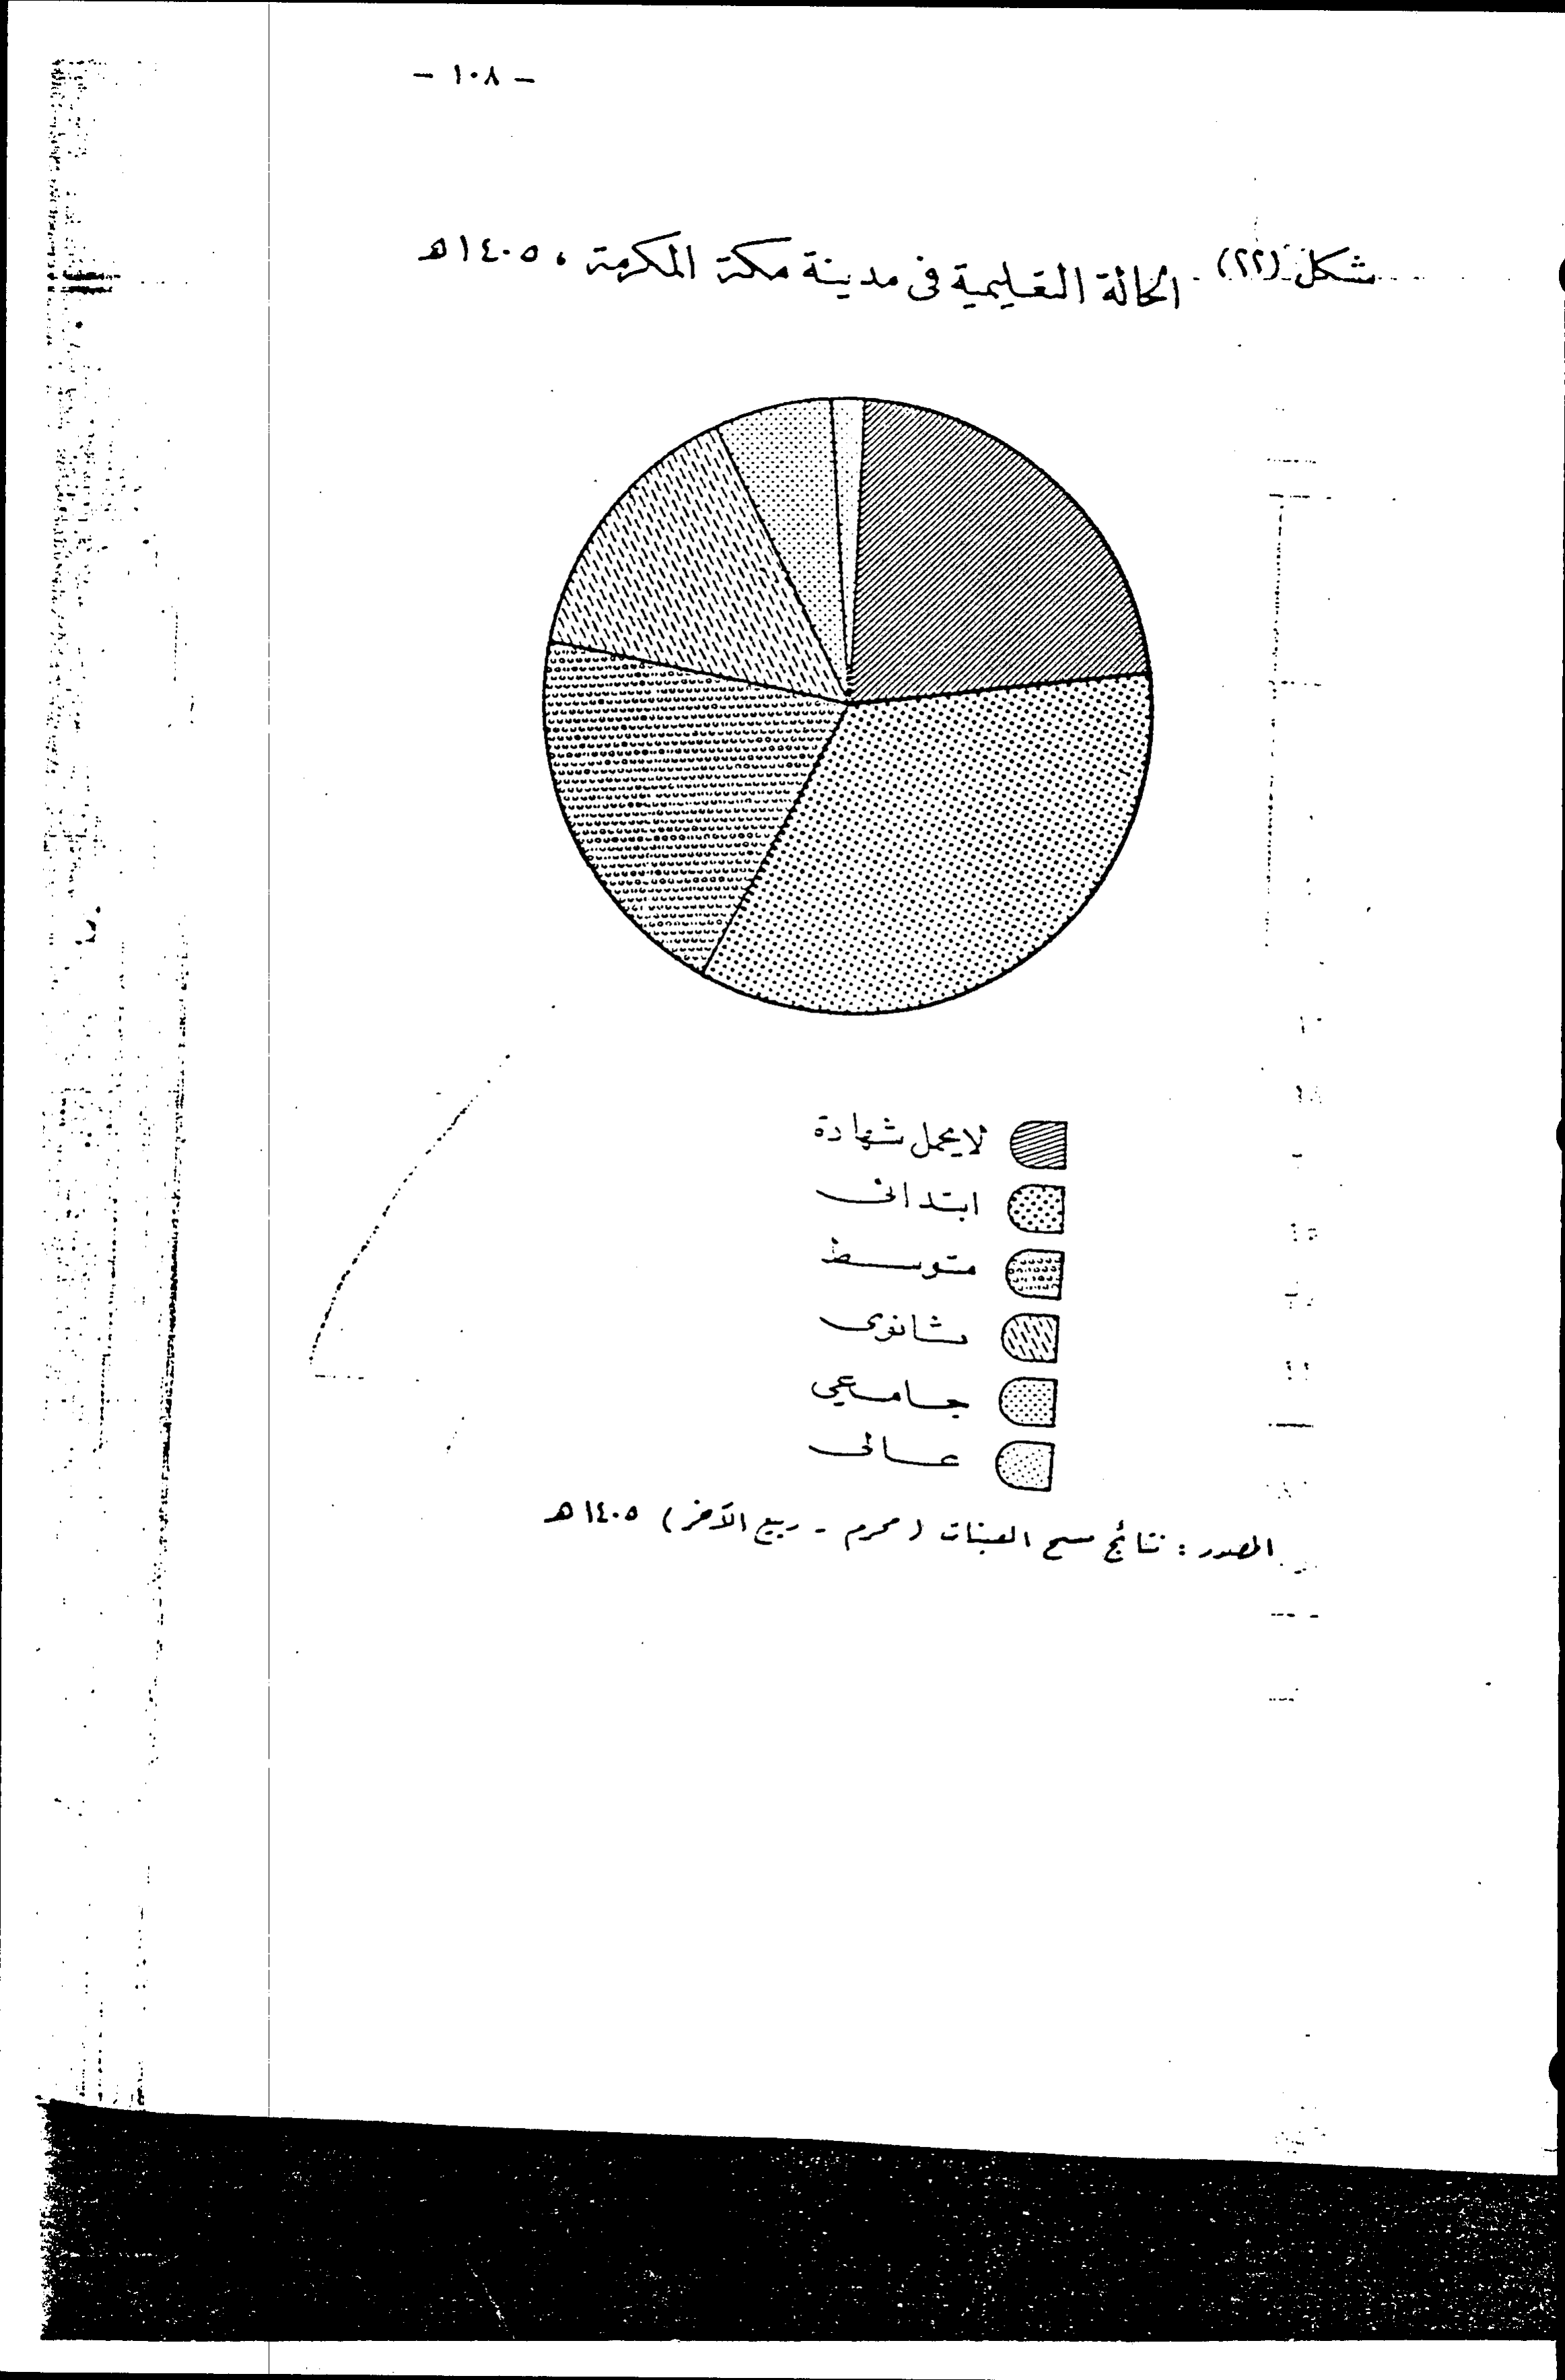 - ١٠٨ -
شكل (٢٢) الحالة التعليمية فى مدينة مكة المكرمة ، ١٤٠٥هـ
لا يحمل شهادة
ابتدائى
متوسط
ثانوى
جامعي
عالى
المصدر : نتائج مسح العينات ( محرم - ربيع الآخر ) ١٤٠٥هـ